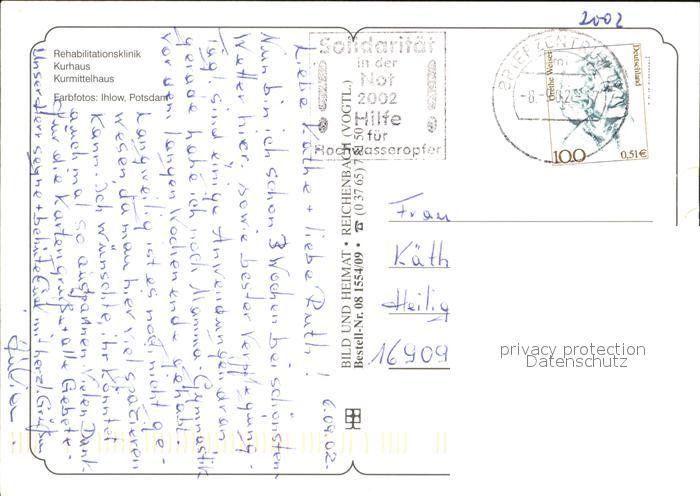 2002
Rehabilitationsklinik
Kurhaus
Kurmittelhaus
Farbfotos: Ihlow, Potsdam
Solidarität
in der
Not
2002
Hilfe
für
Hochwasseropfer
BRIEFZENTRUM
Grethe Weiser
Deutschland
100
0,51€
6.09.02.
Liebe Käthe + liebe Ruth!
Nun bin ich schon 3 Wochen bei schönsten
Wetter hier, sowie bester Verpflegung.
Tägl. sind einige Anwendungen dran,
gerade habe ich noch
vor den langen Wochenende gehabt.
Langweilig ist es noch nicht ge-
wesen, da man hier viel spazieren
kann. Ich wünschte, ihr könntet
auch mal so ausspannen. Vielen Dank
für die Kartengrüße + alle Gebete.
Unser Herr segne + behüte Euch mit herzl. Grüßen
BILD UND HEIMAT • REICHENBACH (VOGTL.)
Bestell-Nr. 08 1554/09 • ☎ (0 37 65) 78 1 50
Frau
Käth
Heilig
16909
privacy protection
Datenschutz